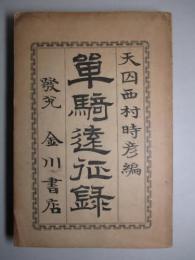 天囚西村時彦編
單騎遠征録
發兌 金川書店